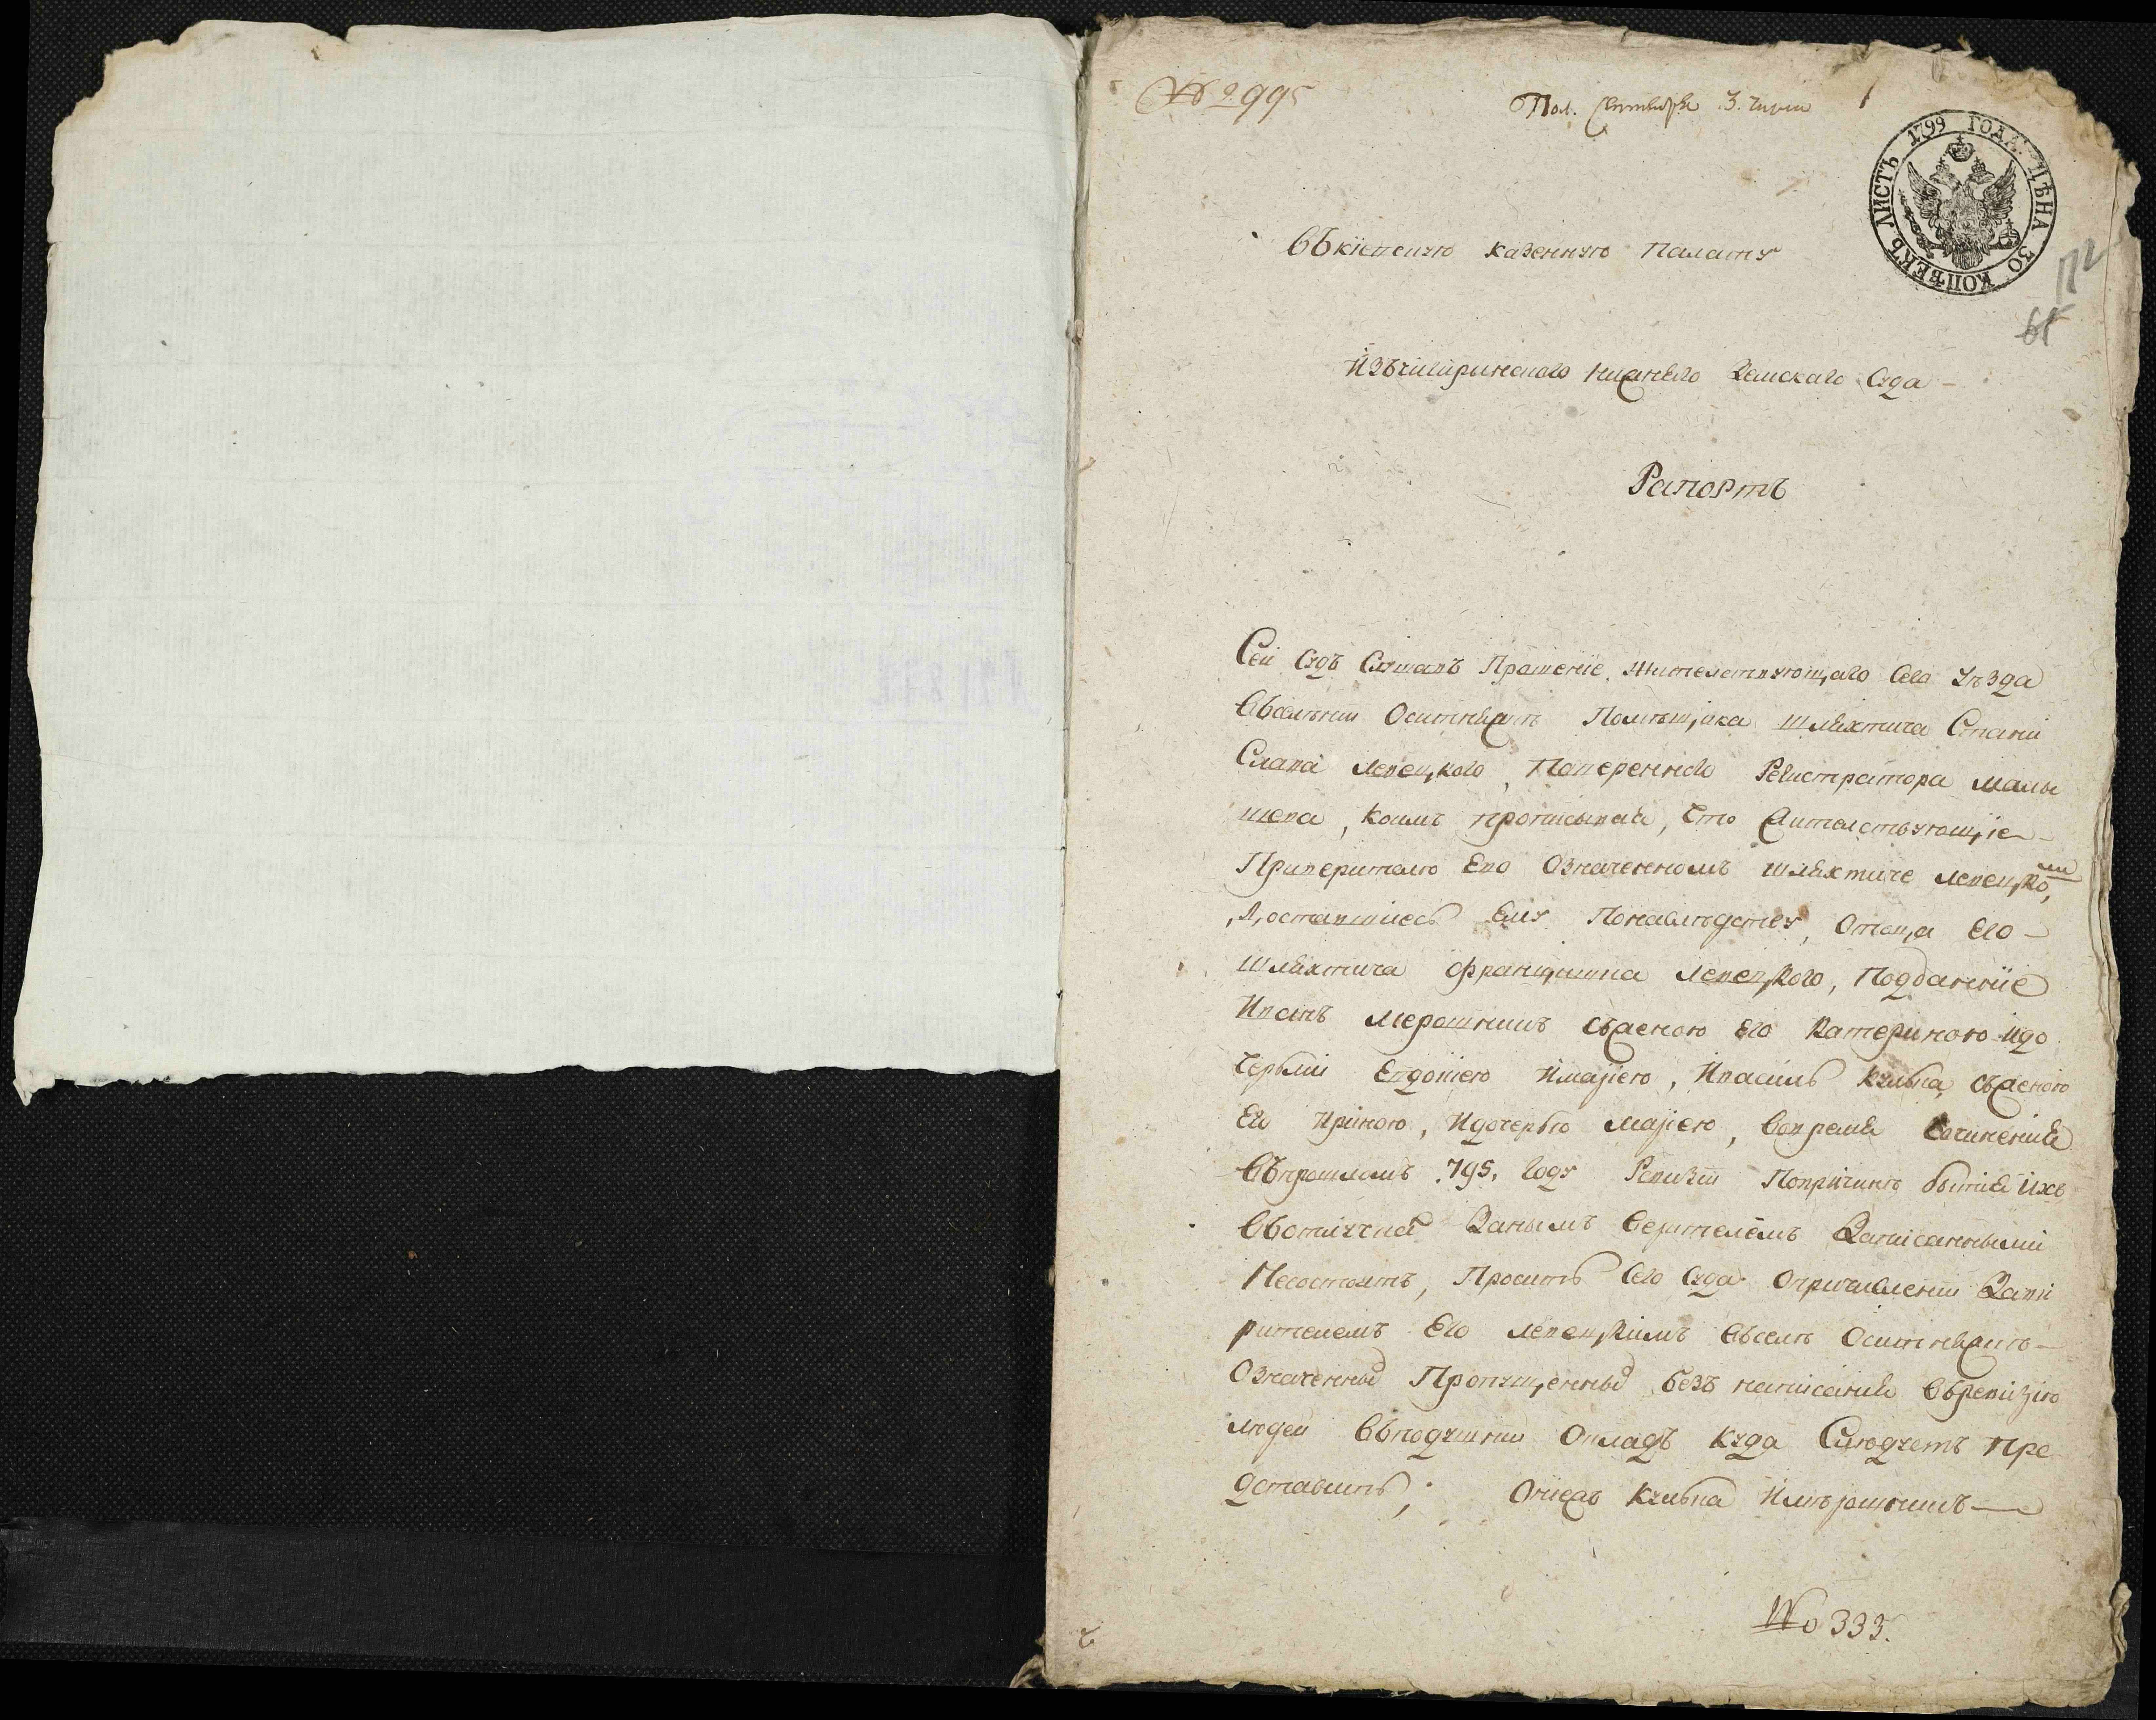 № 2995
Пол. Сентября 3. числа
1
ЛИСТЪ 1799 ГОДА. ЦѢНА 30 КОПѢЕКЪ
Въкіевскую казенную Палату
Изъчигиринского нижняго Земскаго Суда
Рапортъ
Сей Судъ Слушавъ Прошеніе, Жителствующаго Сего Уѣзда
Въселѣніи Оситняжкѣ Помѣщика шляхтича Стани
Слава левецкого, Повѣренного Регистратора малы
шева, коимъ прописывая, что Жителствующіе
Приверителю Ево Означенномъ шляхтиче левецко,мъ
,А, оставшиесь Ему Понаслѣдству, Отъ отца Его
шляхтича францишка левецкого, Подданніе
Иванъ мерошникъ съженою Его Катериною идо
черьми Евдокіею Имаріею, Ивасиль кульва, съженою
Его Ириною, Идочерью маріею, Вовремя Сочиненія
Въпрошломъ .795. Году Ревизіи Попричинѣ бытія ихъ
Вотлучкѣ Заонымъ Верителемъ Записанными
Несостоятъ, Проситъ Сего Суда Опричисленіи Заве
рителемъ Его левецкимъ Въселѣ Оситняжкѣ
Означенных Пропущенных безъ написания Въревизію
людей Въподушній Окладъ куда Слюдуетъ Пре
дставить; Онижъ кульва Имѣрошникъ
№ 333.